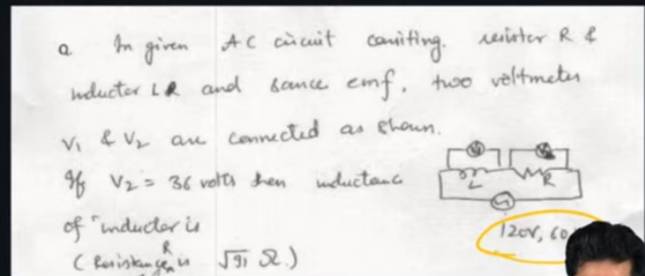 Q In given AC circuit consiting. resistor R &
inductor L and source emf, two voltmeter
V₁ & V₂ are connected as shown.
If V₂ = 36 volts then inductance
of inductor is
(Resistance R is √91 Ω.)
V
V₂
L
R
120V, 60